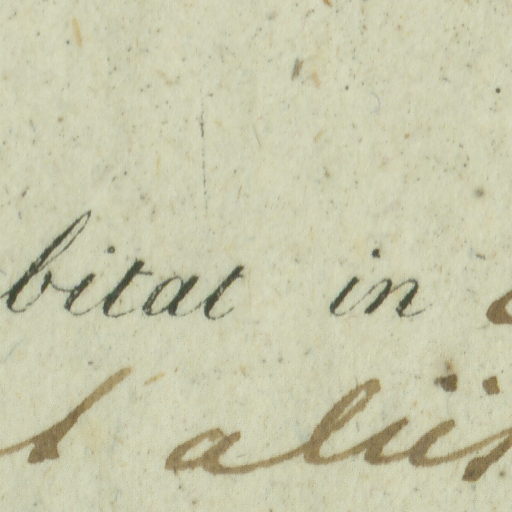 bitat in
aliis